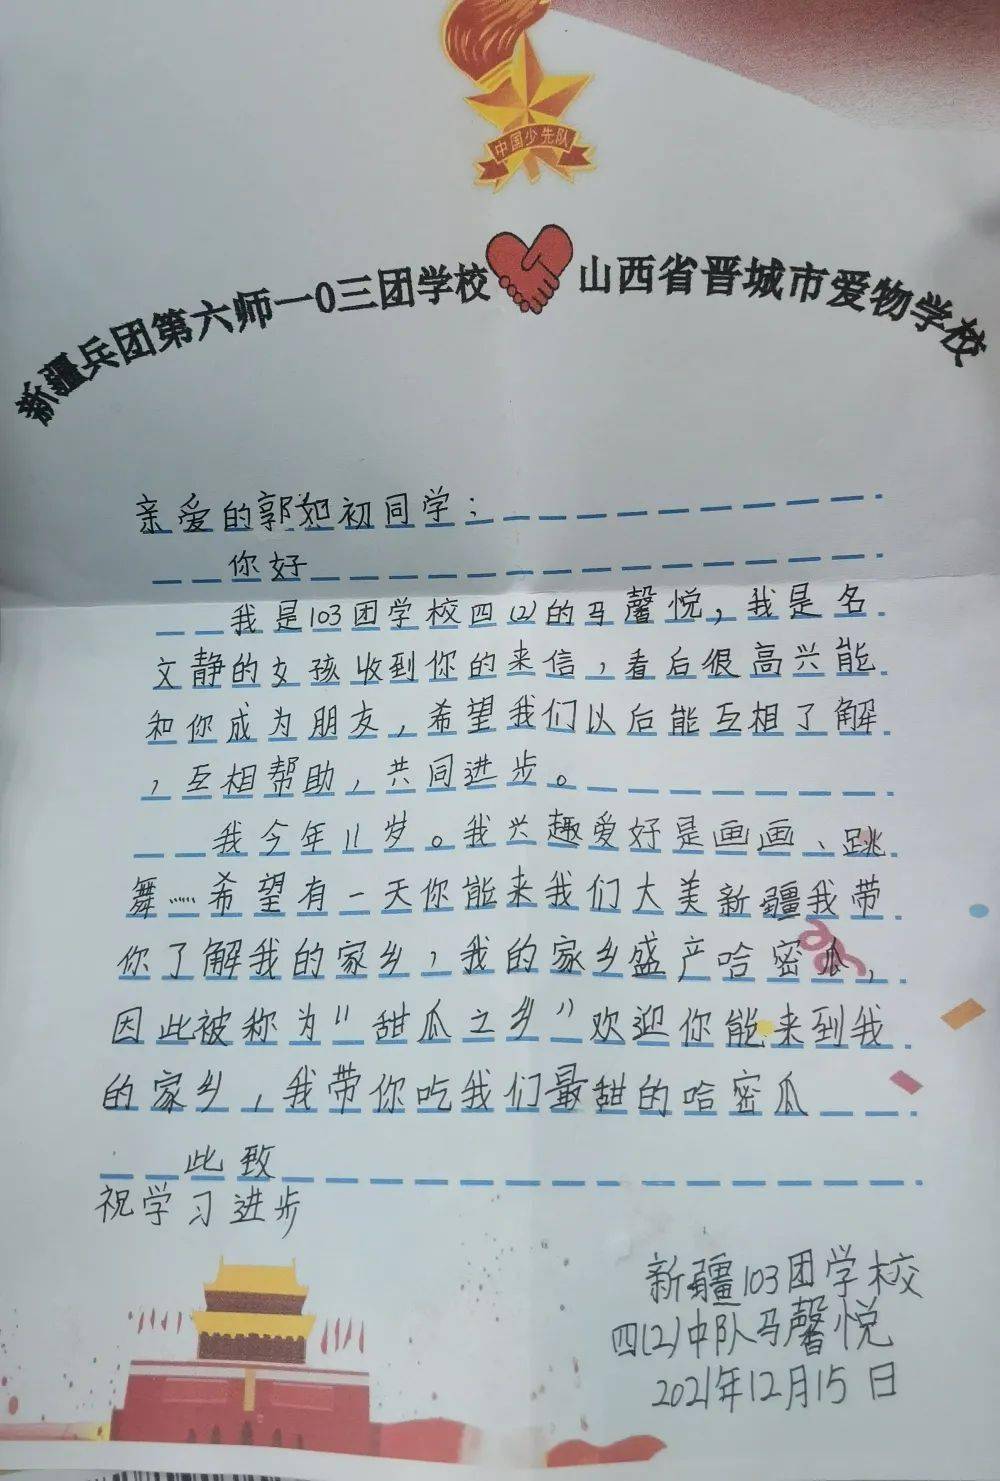 中国少先队
新疆兵团第六师一0三团学校 山西省晋城市爱物学校
亲爱的郭如初同学：
你好
我是103团学校四(2)的马馨悦，我是名
文静的女孩收到你的来信，看后很高兴能
和你成为朋友，希望我们以后能互相了解
，互相帮助，共同进步。
我今年11岁。我兴趣爱好是画画、跳
舞……希望有一天你能来我们大美新疆我带
你了解我的家乡，我的家乡盛产哈密瓜，
因此被称为“甜瓜之乡”欢迎你能来到我
的家乡，我带你吃我们最甜的哈密瓜
此致
祝学习进步
新疆103团学校
四(2)中队马馨悦
2021年12月15日